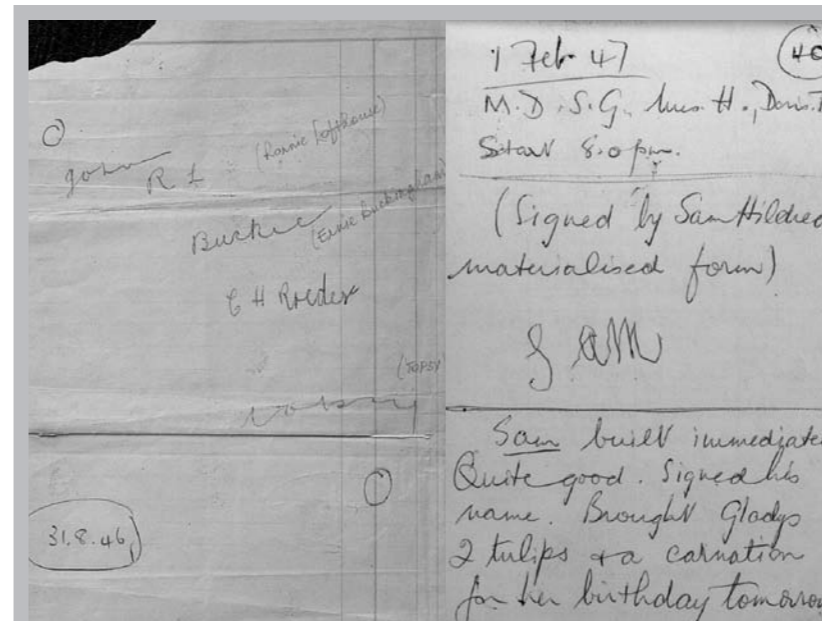 John
R L
(Ronnie Lofthouse)
Buckie
(Ernie Buckingham)
C H Roeder
(TOPSY
31.8.46
1 Feb. 47
(40
M.D. S.G. Mrs. H., Doris.
Start 8.0 pm.
(Signed by Sam Hildred
materialised form)
S AM
Sam built immediate
Quite good. Signed his
name. Brought Gladys
2 tulips & a carnation
for her birthday tomorrow